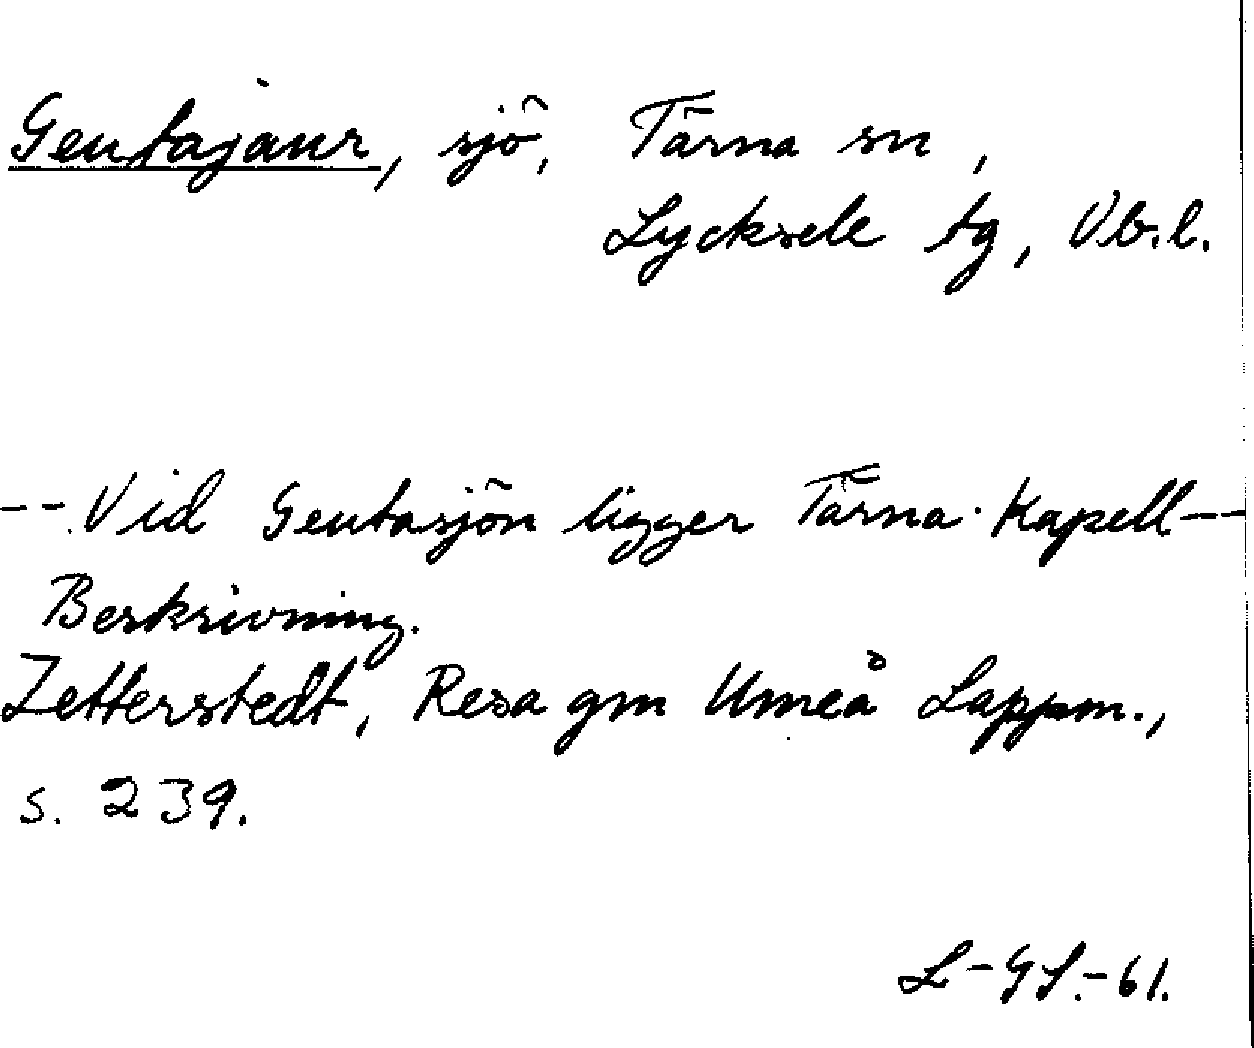 Geutajaur, sjö, Tärna sn,
Lycksele tg, Vb.l.
-- Vid Geutasjön ligger Tärna Kapell --
Beskrivning.
Zetterstedt, Resa gm Umeå Lappm.,
s. 239.
L-GS.-61.